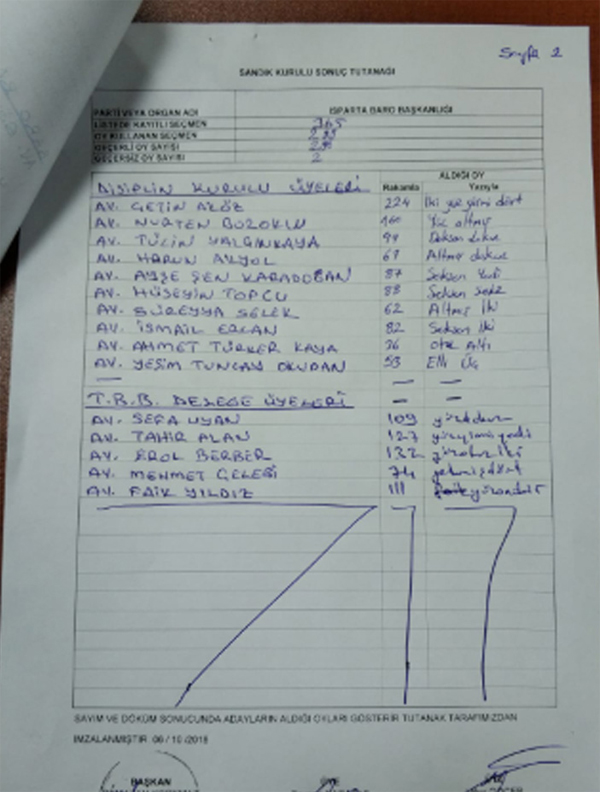 Sayfa 2
SANDIK KURULU SONUÇ TUTANAĞI
PARTİ VEYA ORGAN ADI ISPARTA BARO BAŞKANLIĞI
LİSTEDE KAYITLI SEÇMEN 365
OY KULLANAN SEÇMEN
GEÇERLİ OY SAYISI
GEÇERSİZ OY SAYISI 2
ALDIĞI OY
DİSİPLİN KURULU ÜYELERİ Rakamla Yazıyla
AV. ÇETİN AKÖZ 224 İki yüz yirmi dört
AV. NURTEN BOZOKLU 160 Yüz altmış
AV. TÜLİN YALÇINKAYA
AV. HARUN AKYOL 69 Altmış dokuz
AV. AYŞE ŞEN KARADOĞAN 87 Seksen Yedi
AV. HÜSEYİN TOPCU 88 Seksen sekiz
AV. SÜREYYA SELEK 62 Altmış İki
AV. İSMAİL ERCAN 82 Seksen İki
AV. AHMET TÜRKER KAYA 36 Otuz Altı
AV. YEŞİM TUNCAY OKUDAN 53 Elli Üç
— — —
T.B.B. DELEGE ÜYELERİ — —
AV. SEFA UYAN 109 yüzdokuz
AV. TAHİR ALAN 127 yüzyirmiyedi
AV. EROL BERBER 132 yüzotuziki
AV. MEHMET ÇELEBİ 74 yetmişdört
AV. FAİK YILDIZ 111 yüzonbir
SAYIM VE DÖKÜM SONUCUNDA ADAYLARIN ALDIĞI OYLARI GÖSTERİR TUTANAK TARAFIMIZDAN
İMZALANMIŞTIR 06 / 10 / 2018
BAŞKAN ÜYE